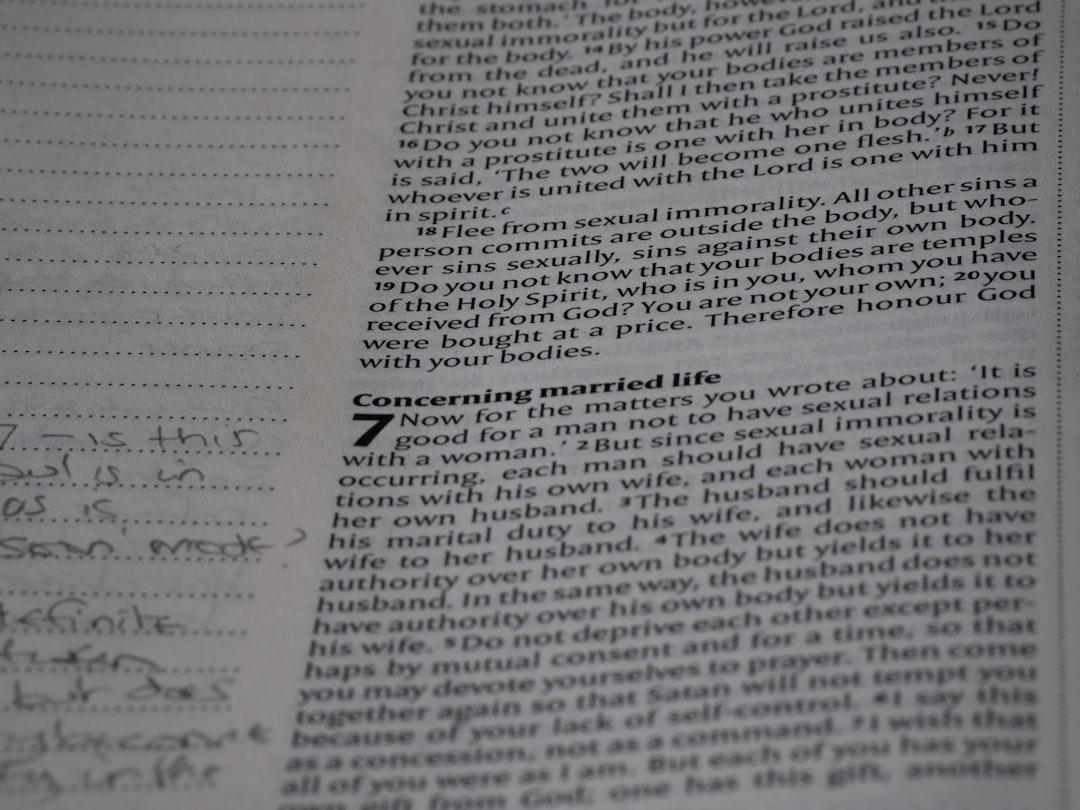 the stomach for
them both.' The body, however
sexual immorality but for the Lord, and the Lord
for the body. 14 By his power God raised the Lord
from the dead, and he will raise us also. 15 Do
you not know that your bodies are members of
Christ himself? Shall I then take the members of
Christ and unite them with a prostitute? Never!
16 Do you not know that he who unites himself
with a prostitute is one with her in body? For it
is said, 'The two will become one flesh.' b 17 But
whoever is united with the Lord is one with him
in spirit. c
18 Flee from sexual immorality. All other sins a
person commits are outside the body, but who-
ever sins sexually, sins against their own body.
19 Do you not know that your bodies are temples
of the Holy Spirit, who is in you, whom you have
received from God? You are not your own; 20 you
were bought at a price. Therefore honour God
with your bodies.
Concerning married life
7 Now for the matters you wrote about: 'It is
good for a man not to have sexual relations
with a woman.' 2 But since sexual immorality is
occurring, each man should have sexual rela-
tions with his own wife, and each woman with
her own husband. 3 The husband should fulfil
his marital duty to his wife, and likewise the
wife to her husband. 4 The wife does not have
authority over her own body but yields it to her
husband. In the same way, the husband does not
have authority over his own body but yields it to
his wife. 5 Do not deprive each other except per-
haps by mutual consent and for a time, so that
you may devote yourselves to prayer. Then come
together again so that Satan will not tempt you
because of your lack of self-control. 6 I say this
as a concession, not as a command. 7 I wish that
all of you were as I am. But each of you has your
own gift from God; one has this gift, another
7 – is this
is in
as is
made
definite
but does
in the